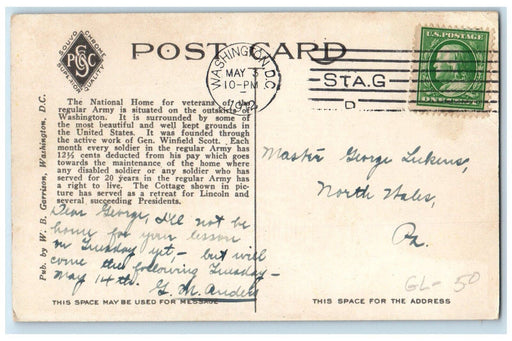 SOUVO CHROME
P S C C
SUPERIOR QUALITY
POST CARD
WASHINGTON, D.C.
MAY 3
10-PM
STA.G
D
U.S. POSTAGE
Pub. by W. B. Garrison, Washington, D.C.
The National Home for veterans of the
regular Army is situated on the outskirts of
Washington. It is surrounded by some of
the most beautiful and well kept grounds in
the United States. It was founded through
the active work of Gen. Winfield Scott. Each
month every soldier in the regular Army has
12½ cents deducted from his pay which goes
towards the maintenance of the home where
any disabled soldier or any soldier who has
served for 20 years in the regular Army has
a right to live. The Cottage shown in pic-
ture has served as a retreat for Lincoln and
several succeeding Presidents.
Dear George, I'll not be
home for your lesson
on Tuesday yet, - but will
come the following Tuesday -
May 14th. G. M. Anders
Master George Lukens,
North Wales,
Pa.
GL- 50
THIS SPACE MAY BE USED FOR MESSAGE
THIS SPACE FOR THE ADDRESS